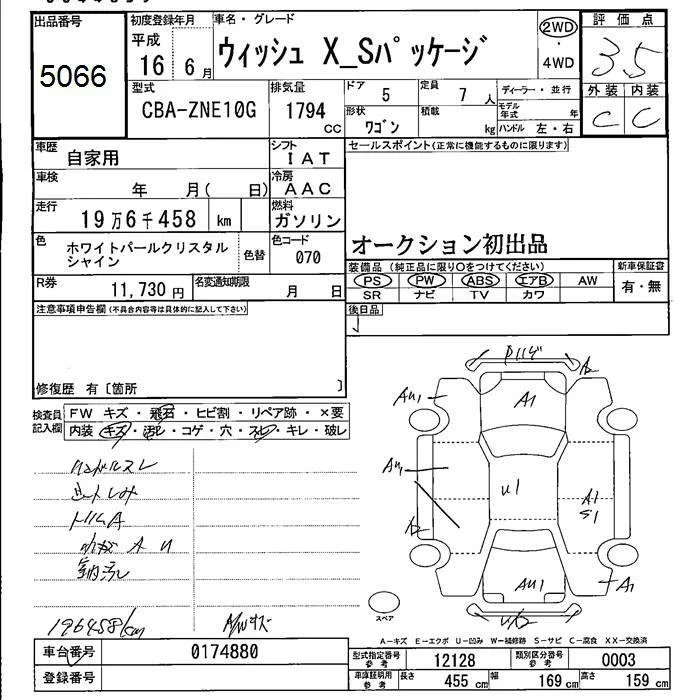 出品番号
5066
初度登録年月
平成
16 6月
車名・グレード
ウィッシュ X_Sパッケージ
2WD
・
4WD
評価点
3.5
外装 内装
C C
型式
CBA-ZNE10G
排気量
1794
CC
ドア
5
定員
7 人
形状
ワゴン
積載
kg
ディーラー・並行
モデル年式 年
ハンドル 左・右
車歴
自家用
シフト
IAT
車検
年 月( 日)
冷房
AAC
走行
19万6千458 km
燃料
ガソリン
色
ホワイトパールクリスタル
シャイン
色替
色コード
070
R券
11,730 円
名変通知期限
月 日
セールスポイント(正常に機能するものに限ります)
オークション初出品
装備品 (純正品に限り○をつけてください)
新車保証書
PS PW ABS エアB AW
SR ナビ TV カワ
有・無
後日品
注意事項申告欄(不具合内容等は具体的に記入して下さい)
修復歴 有〔箇所 〕
検査員
記入欄
FW キズ・飛石・ヒビ割・リペア跡・×要
内装 キズ・汚レ・コゲ・穴・スレ・キレ・破レ
ハンドルスレ
シートしみ
トリムA
室内汚レ
196458km
A/Wキズ
A1
A2
AU1
A1
AU1
U1
A2
A1
S1
AU1
A1
スペア
A-キズ E-エクボ U-凹み W-補修跡 S-サビ C-腐食 XX-交換済
車台番号
0174880
登録番号
型式指定番号
参考
12128
類別区分番号
参考
0003
車庫証明用
参考
長さ
455 cm
幅
169 cm
高さ
159 cm